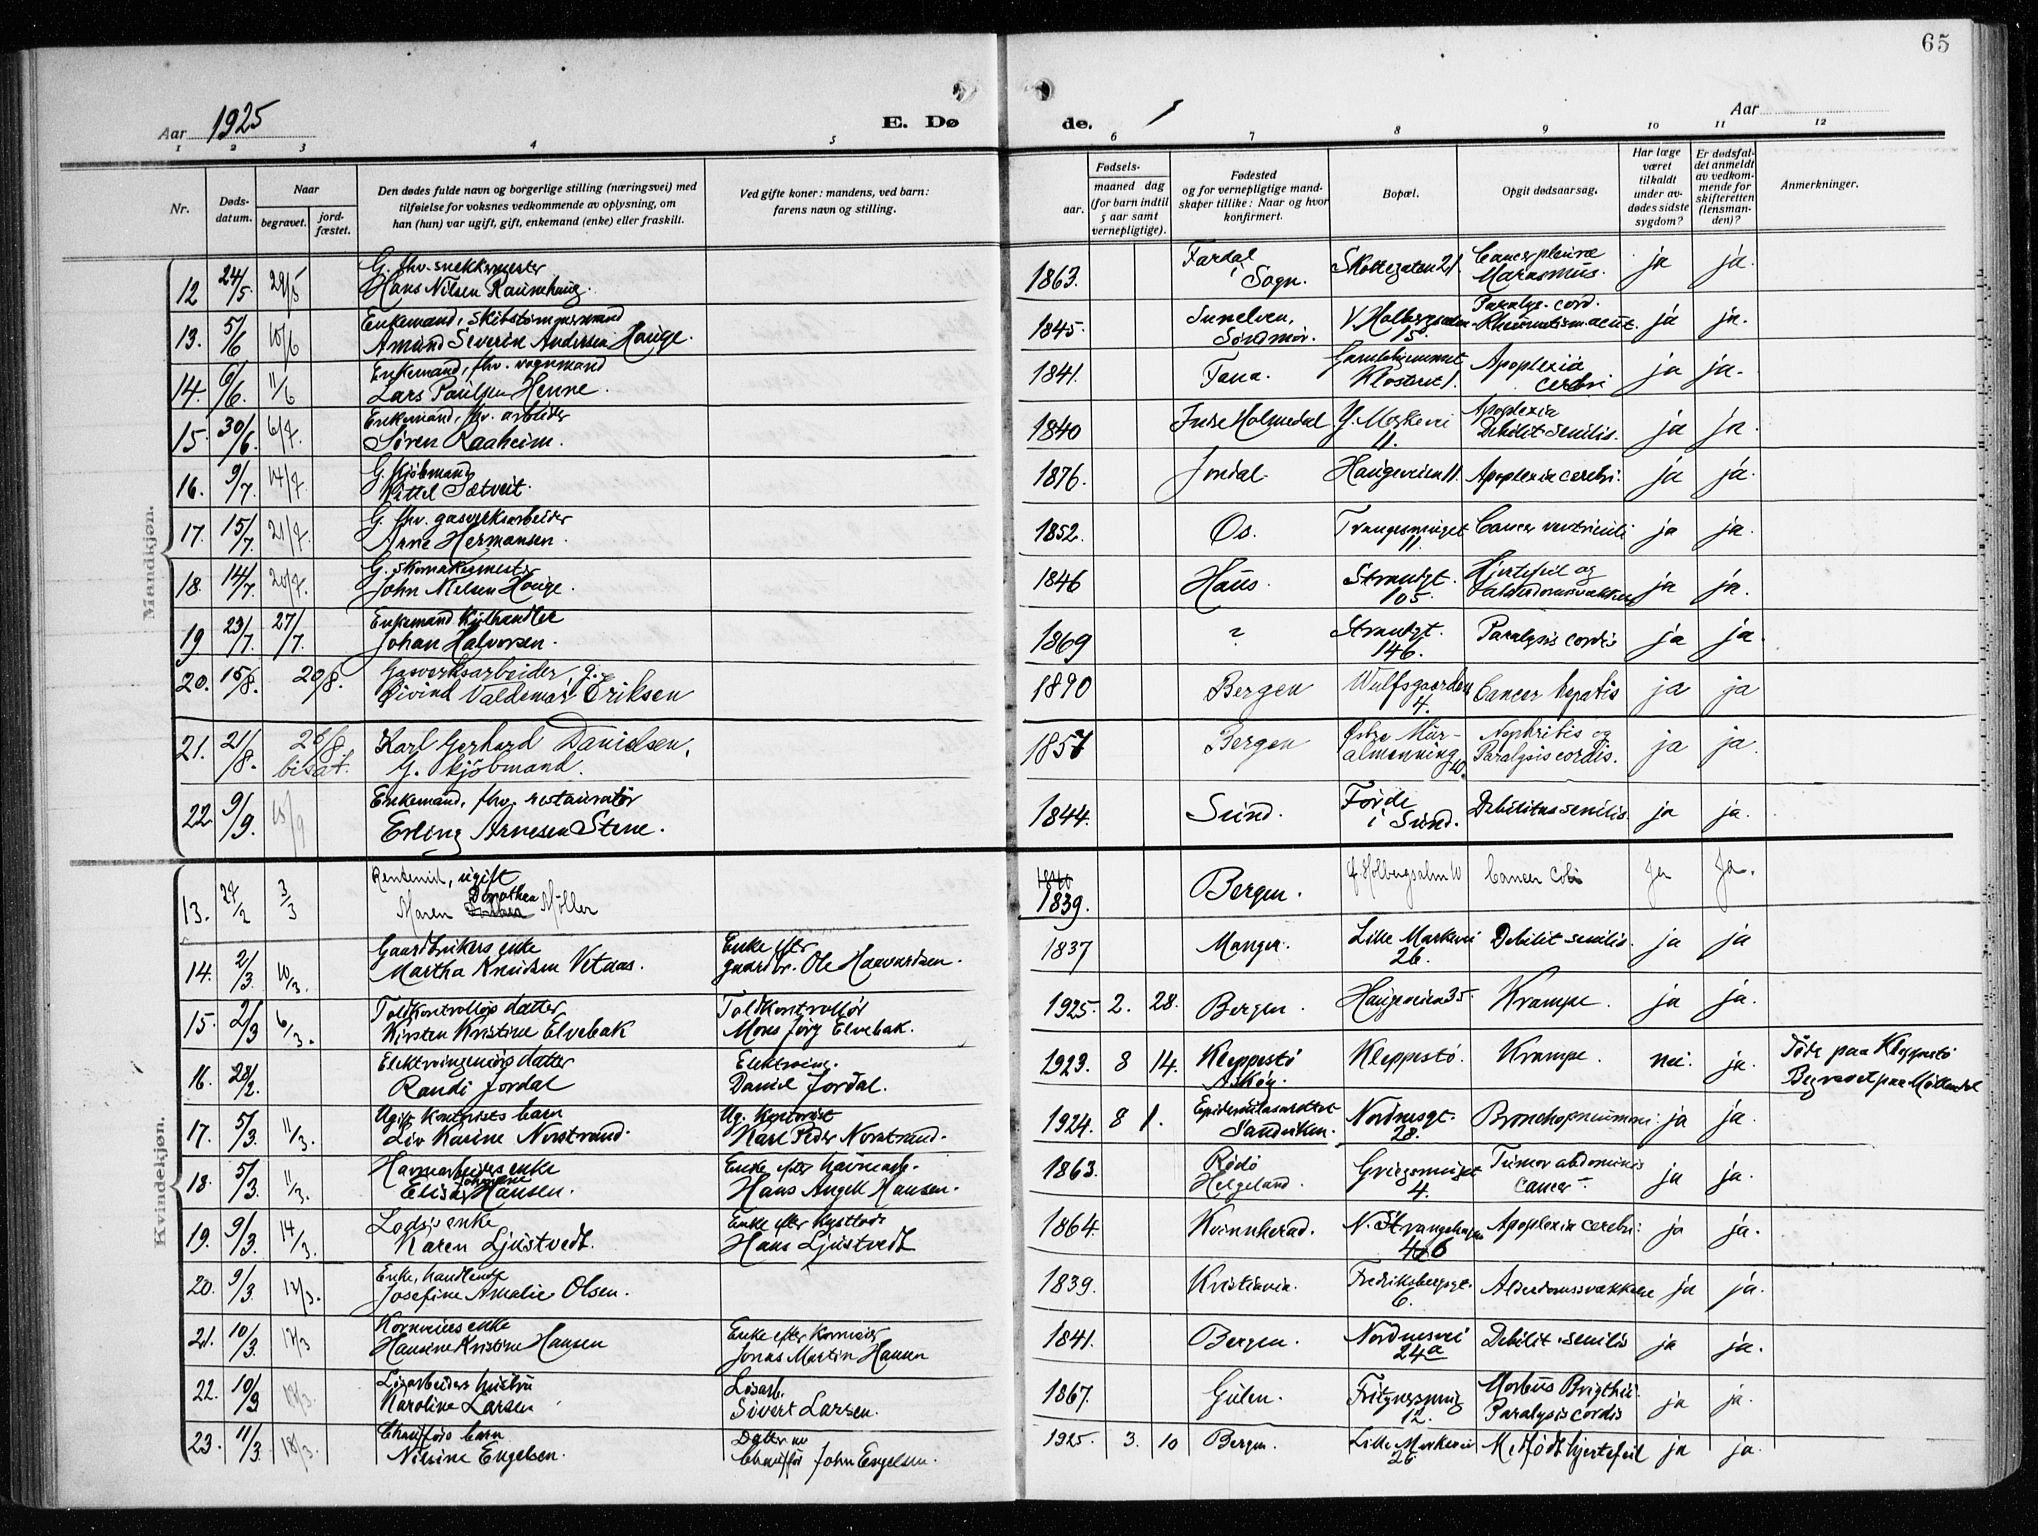 65
Aar 1925
E. Dø
de.
Aar
1 2 3 4 5 6 7 8 9 10 11 12
Nr.
Døds-
datum.
Naar
begravet.
jord-
fæstet.
Den dødes fulde navn og borgerlige stilling (næringsvei) med
tilføielse for voksnes vedkommende av oplysning, om
han (hun) var ugift, gift, enkemand (enke) eller fraskilt.
Ved gifte koner: mandens, ved barn:
farens navn og stilling.
Fødsels-
aar.
maaned dag
(for barn indtil
5 aar samt
vernepligtige).
Fødested
og for vernepligtige mand-
skaper tillike: Naar og hvor
konfirmert.
Bopæl.
Opgit dødsaarsag.
Har læge
været
tilkaldt
under av-
dødes sidste
sygdom?
Er dødsfal-
det anmeldt
av vedkom-
mende for
skifteretten
(lensman-
den)?
Anmerkninger.
Mandkjøn.
G. fhv. snekkermester Fardal Cancer pleuræ
12 24/5 29/5 Hans Nilsen Raunehaug. 1863. i Sogn. Skottegaten 21. Marasmus. ja ja.
Enkemand, Sunelven, Paralys. cord.
13. 5/6 10/6 Amand Severin Andersen Hauge. 1845. Søndmør. 15. Rheumatism acut. ja ja.
Enkemand, fhv. vognmand Gamlehjemmet Apoplexia
14. 6/6 11/6 Lars Paulsen Henne. 1841. Fana. Klostret 1. cerebri ja ja.
Enkemand, fhv. arbeider Apoplexia
15. 30/6 6/7 Søren Raaheim. 1840 Indre Holmedal 11. Debilit. senilis. ja ja.
G. Kjøbmand
16. 9/7. 14/7 Kittel Sætveit. 1876. Jondal. Haugeveien 11. Apoplexia cerebri. ja ja.
G. fhv. gasverksarbeider
17. 15/7. 21/7. Arne Hermansen. 1852. Os. Trangesmuget 11. Cancer ventriculi ja ja.
G. skomakermester Hjertefeil og
18. 14/7. 20/7. John Nielsen Hauge. 1846 Haus. Strandgt. 105. Alderdomssvækkelse ja ja.
Enkemand
19 23/7. 27/7. Johan Halvorsen. 1869 ? Strandgt. 146. Paralysis cordis ja ja.
Gasverksarbeider, g.
20. 15/8. 20/8. Øivind Valdemar Eriksen 1890 Bergen Wulfsgaarden 4. Cancer hepatis ja ja
21. 21/8. 26/8 Karl Gerhard Danielsen, 1857 Bergen Østre Mur- Nephritis og ja ja.
bisat. G. kjøbmand. almenning 10. Paralysis cordis.
Enkemand, fhv. restauratør Førde
22. 9/9. 15/9 Erling Arnesen Stene. 1844. Sund. i Sund. Debilitas senilis ja ja.
Kvindekjøn.
Rentenist, ugift 1840
13. 27/2 3/3 Maren Dorthea Dorothea Møller 1839. Bergen. Cancer coli Ja Ja.
Gaardbrukers enke Enke efter Lille Markevei
14. 2/3. 10/3. Martha Knudsen Vetaas. gaardbr. Ole Haavardsen. 1837 Manger. 26. Debilit senilis. ja ja
Toldkontrollørs datter Toldkontrollør
15. 2/3 6/3. Kirsten Kristine Elvebak Mons Jørg Elvebak. 1925. 2. 28. Bergen Haugeveien 35. Krampe. ja ja.
Elektroingeniørs datter Elektroing. Kleppestø Døde paa Kleppestø
16. 28/2. Randi Jordal Daniel Jordal. 1923. 8 14. Askøy. Kleppestø. Krampe. nei. ja. Begravet paa Møllendal
Ugift kontorists barn Ug. kontorist Epidemilasarettet Nordnesgt.
17. 5/3. 11/3. Liv Karine Norstrand. Karl Peder Norstrand. 1924. 8 1. Sandviken. 28. Bronchopneumoni. ja ja.
Havnearbeiders enke Enke efter havnearb. Rødø Griegsmuget Tumor abdominis
18. 5/3. 11/3. Hansen. Hans Angell Hansen. 1863. Helgeland. 4. cancer ja ja.
Lods's enke Enke efter kystlods
19. 9/3. 14/3. Karen Ljustvedt. Hans Ljustvedt 1864. Kvinnherad. Apoplexia cerebri. ja ja.
Enke, handlende Fredriksbergsgt.
20. 9/3. 12/3. Josefine Amalie Olsen. 1839. Kristiania. 6. Alderdomssvækkelse ja ja.
Kornveiers enke Enke efter kornveier Nordnesvei
21. 10/3. 17/3 Hansine Kristine Hansen Jonas Martin Hansen 1841. Bergen. 24a Debilit. senilis ja ja.
Løsarbeiders hustru Løsarb. Morbus Brigthii.
22. 10/3 Karoline Larsen Sivert Larsen. 1867. Gulen. 12. Paralysis cordis ja ja.
Chaufførs barn Datter av Lille Markevei
23. 11/3. 18/3. Nilsine Engelsen. Chauffør John Engelsen. 1925. 3. 10 Bergen. 26. Medfødt hjertefeil ja ja.